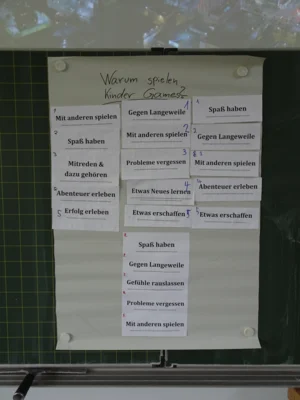 Warum spielen
Kinder Games?
1 Mit anderen spielen
2 Spaß haben
3 Mitreden &
dazu gehören
Abenteuer erleben
5 Erfolg erleben
Gegen Langeweile 1
Mit anderen spielen 2
Probleme vergessen 3
Etwas Neues lernen 4
Etwas erschaffen 5
1 Spaß haben
2 Gegen Langeweile
Mit anderen spielen
Abenteuer erleben
Etwas erschaffen
Spaß haben
Gegen Langeweile
Gefühle rauslassen
Probleme vergessen
Mit anderen spielen